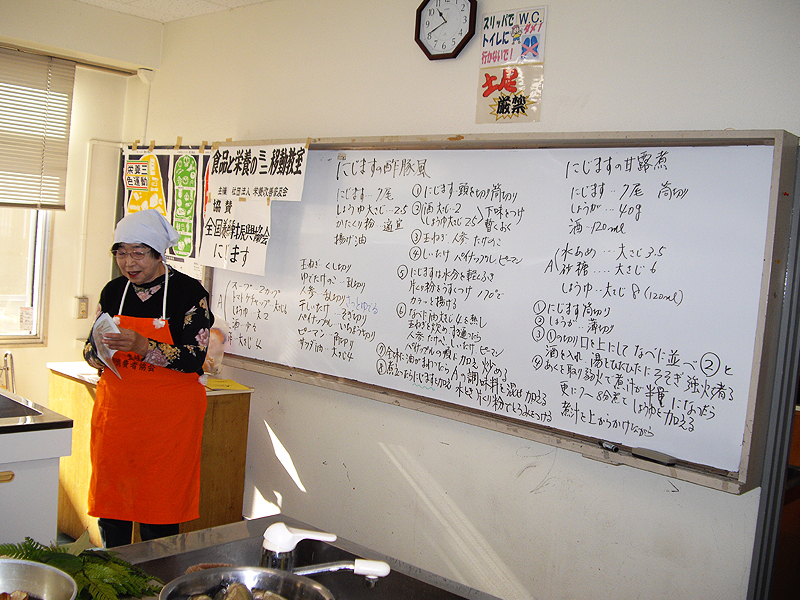 スリッパで W.C.
トイレに ダメ!
行かないで!
土足
厳禁
栄養三
色運動
食品と栄養の三三移動教室
主催 社団法人 栄養改善普及会
協賛
全国養鱒振興協会
にじます
にじますの酢豚風
にじます…7尾
しょうゆ 大さじ…2.5
かたくり粉 適宜
揚げ油
玉ねぎ くし切り
ゆでたけのこ…乱切り
人参 乱切り さっとゆでる
干しいたけ…そぎ切り
パイナップル いちょう切り
ピーマン 角切り
サラダ油 大さじ4
A
スープ 2カップ
トマトケチャップ 大さじ6
しょうゆ 大2
酢 大さじ4
①にじます 頭を切り 筒切り
②酒 大さじ2 下味をつけ
しょうゆ大さじ2.5 暫くおく
③玉ねぎ 人参 たけのこ
④しいたけ パイナップル ピーマン
⑤にじますは水分を軽くふき
片くり粉をうすくつけ 170℃で
カラッと揚げる
⑥なべに油大さじ4を熱し
玉ねぎを炒め すき通ったら
人参 たけのこ しいたけ ピーマン
パイナップルの順に加え 炒める
⑦全体に油がまわったらAの調味料を混ぜ加え
⑧煮立ったらにじますを加え 水とき片くり粉でとろみをつける
にじますの甘露煮
にじます…7尾 筒切り
しょうが…40g
酒…120ml
A
水あめ…大さじ3.5
砂糖……大さじ6
しょうゆ…大さじ8 (120ml)
①にじます筒切り
②しょうが…薄切り
③①の切り口を上にしてなべに並べ②と
酒を入れ 湯をひたひたにそそぎ 強火で煮る
④あくを取り弱火で煮汁が半量になったら
更に7〜8分煮て しょうゆを加える
煮汁を上からかけながら